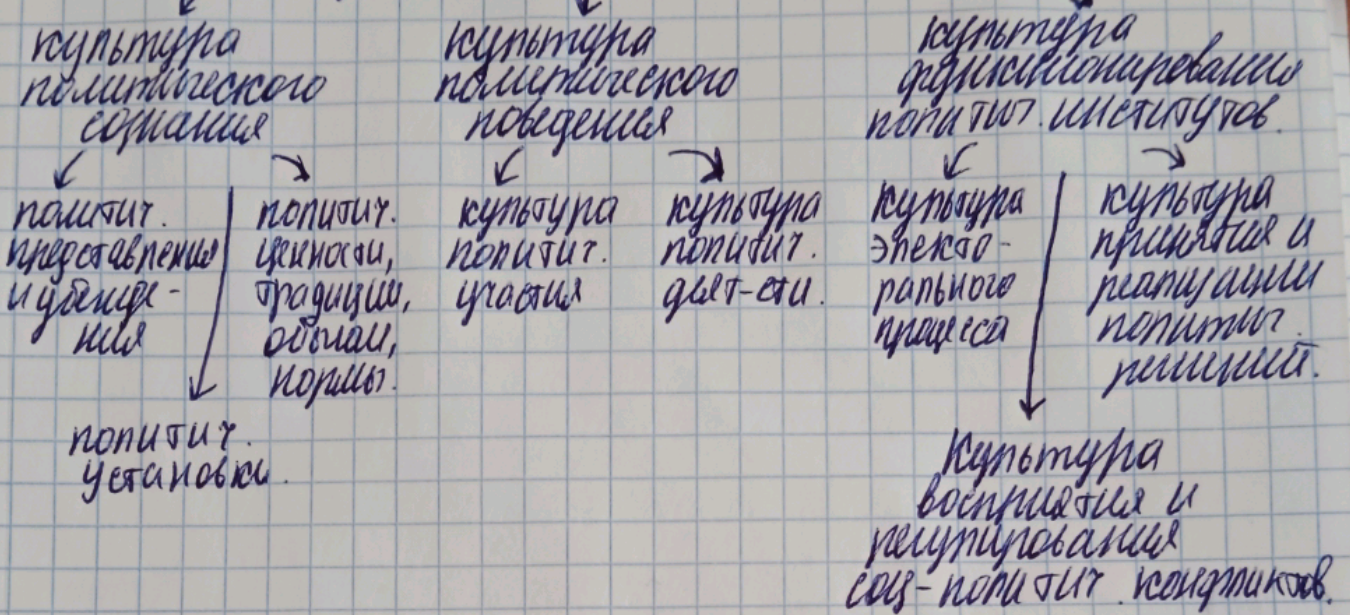 культура
политического
сознания
политич.
представления
и убежде-
ния
политич.
ценности,
традиции,
обычаи,
нормы.
политич.
установки.
культура
политического
поведения
культура
политич.
участия
культура
политич.
деят-сти.
культура
функционирования
политич. институтов.
культура
электо-
рального
процесса
культура
принятия и
реализации
политич.
решений.
культура
восприятия и
регулирования
соц-политич. конфликтов.